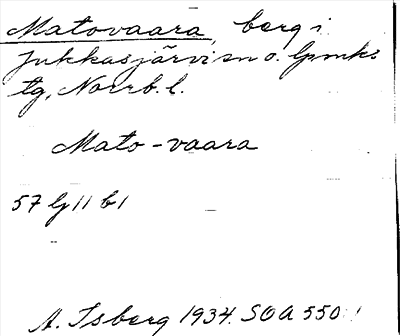 Matovaara, berg i
Jukkasjärvi sn o. lpmks
tg, Norrb. l.
Mato-vaara
57 Gj 11 b 1
A. Isberg 1934. SOA 550